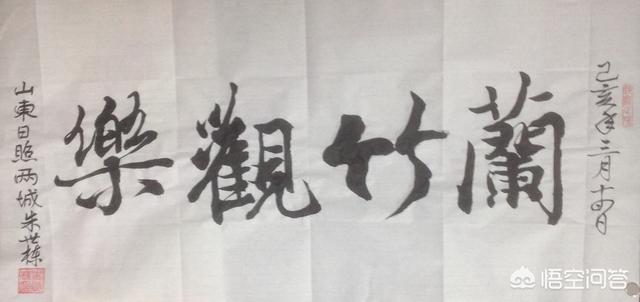 己亥年三月十四日
蘭竹觀樂
山東日照两城朱世栋
悟空问答